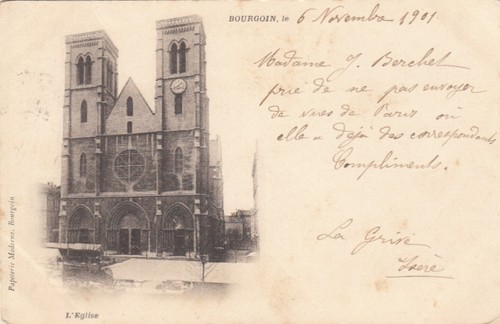 BOURGOIN, le 6 Novembre 1901
Madame J. Berchet
prie de ne pas envoyer
de vues de Paris où
elle a déjà des correspondants
Compliments.
La Grive
Isère
Papeterie Moderne, Bourgoin
L'Eglise